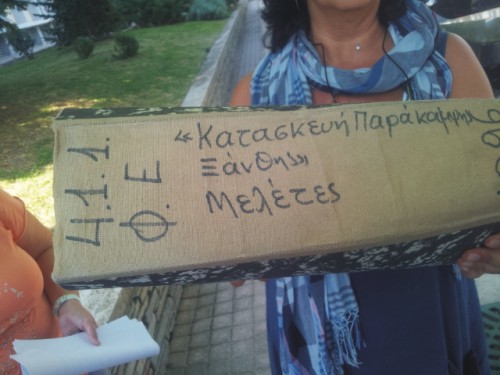 4.1.1.
Φ. Ε
«Κατασκευή Παράκαμψη
Ξάνθης»
Μελέτες